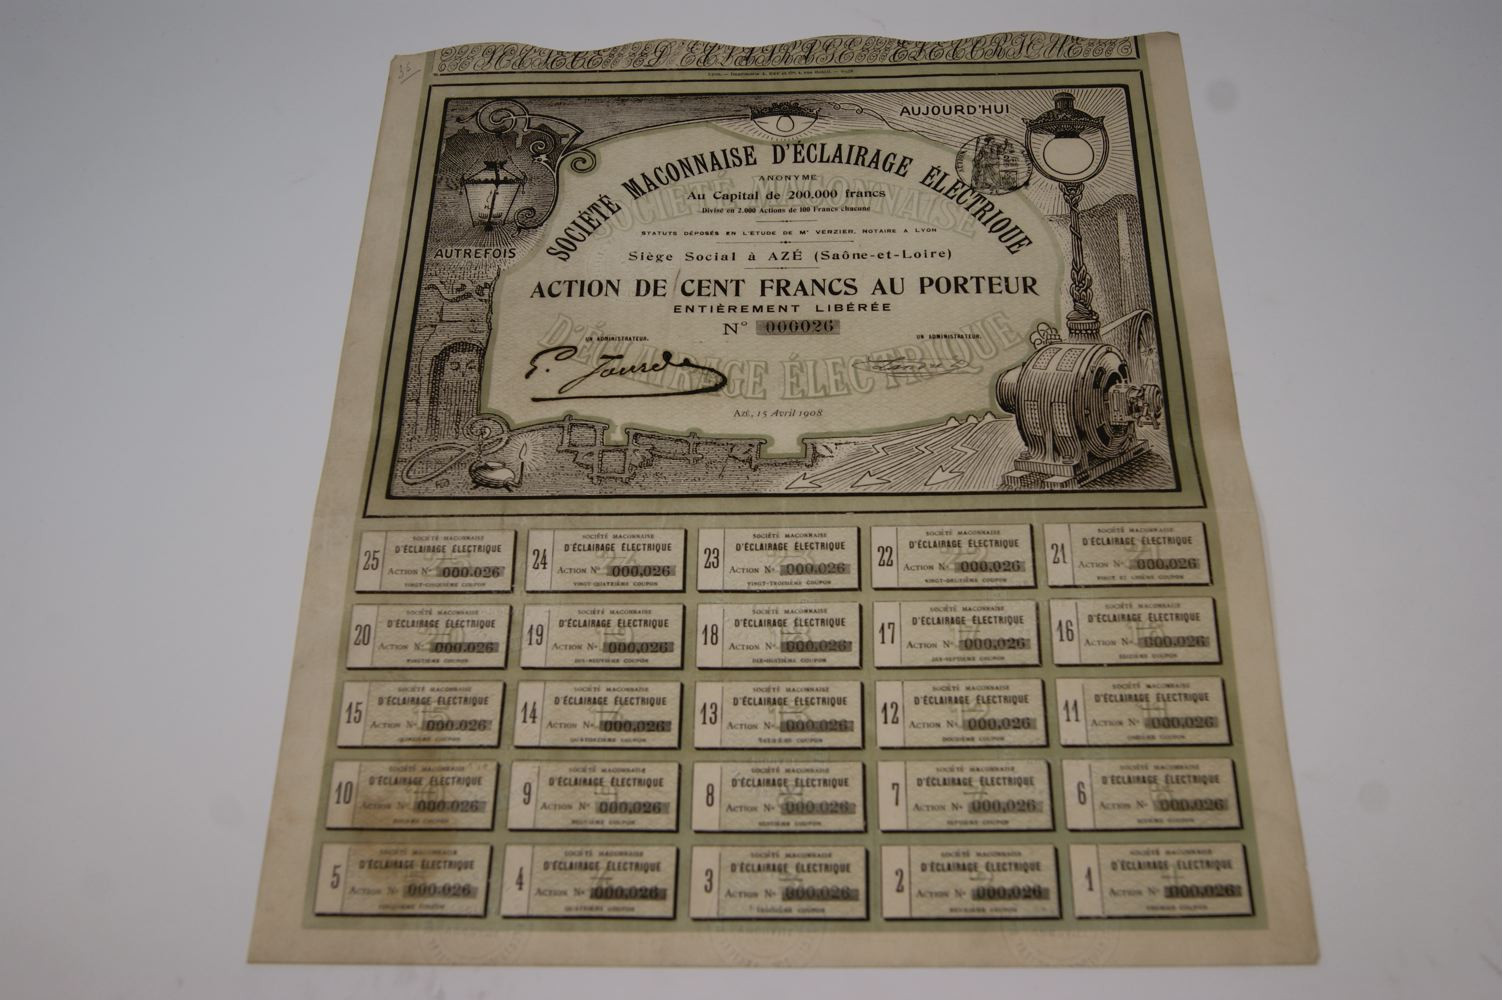 36
D'ÉCLAIRAGE ÉLECTRIQUE
AUJOURD'HUI
SOCIÉTÉ MACONNAISE D'ÉCLAIRAGE ÉLECTRIQUE
ANONYME
Au Capital de 200.000 francs
Divisé en 2.000 Actions de 100 Francs chacune
STATUTS DÉPOSÉS EN L'ÉTUDE DE Mᵉ VERZIER, NOTAIRE A LYON
AUTREFOIS
Siège Social à AZÉ (Saône-et-Loire)
ACTION DE CENT FRANCS AU PORTEUR
ENTIÈREMENT LIBÉRÉE
N° 000026
UN ADMINISTRATEUR.
UN ADMINISTRATEUR.
SOCIÉTÉ MACONNAISE
D'ÉCLAIRAGE ÉLECTRIQUE
Azé, 15 Avril 1908
25
SOCIÉTÉ MACONNAISE
D'ÉCLAIRAGE ÉLECTRIQUE
ACTION N° 000.026
VINGT-CINQUIÈME COUPON
24
SOCIÉTÉ MACONNAISE
D'ÉCLAIRAGE ÉLECTRIQUE
ACTION N° 000,026
VINGT-QUATRIÈME COUPON
23
SOCIÉTÉ MACONNAISE
D'ÉCLAIRAGE ÉLECTRIQUE
ACTION N° 000.026
VINGT-TROISIÈME COUPON
22
SOCIÉTÉ MACONNAISE
D'ÉCLAIRAGE ÉLECTRIQUE
ACTION N° 000.026
VINGT-DEUXIÈME COUPON
21
SOCIÉTÉ MACONNAISE
D'ÉCLAIRAGE ÉLECTRIQUE
ACTION N° 000.026
VINGT ET UNIÈME COUPON
20
SOCIÉTÉ MACONNAISE
D'ÉCLAIRAGE ÉLECTRIQUE
ACTION N° 000.026
VINGTIÈME COUPON
19
SOCIÉTÉ MACONNAISE
D'ÉCLAIRAGE ÉLECTRIQUE
ACTION N° 000,026
DIX-NEUVIÈME COUPON
18
SOCIÉTÉ MACONNAISE
D'ÉCLAIRAGE ÉLECTRIQUE
ACTION N° 000.026
DIX-HUITIÈME COUPON
17
SOCIÉTÉ MACONNAISE
D'ÉCLAIRAGE ÉLECTRIQUE
ACTION N° 000,026
DIX-SEPTIÈME COUPON
16
SOCIÉTÉ MACONNAISE
D'ÉCLAIRAGE ÉLECTRIQUE
ACTION N° 000.026
SEIZIÈME COUPON
15
SOCIÉTÉ MACONNAISE
D'ÉCLAIRAGE ÉLECTRIQUE
ACTION N° 000.026
QUINZIÈME COUPON
14
SOCIÉTÉ MACONNAISE
D'ÉCLAIRAGE ÉLECTRIQUE
ACTION N° 000,026
QUATORZIÈME COUPON
13
SOCIÉTÉ MACONNAISE
D'ÉCLAIRAGE ÉLECTRIQUE
ACTION N° 000.026
TREIZIÈME COUPON
12
SOCIÉTÉ MACONNAISE
D'ÉCLAIRAGE ÉLECTRIQUE
ACTION N° 000,026
DOUZIÈME COUPON
11
SOCIÉTÉ MACONNAISE
D'ÉCLAIRAGE ÉLECTRIQUE
ACTION N° 000.026
ONZIÈME COUPON
10
SOCIÉTÉ MACONNAISE
D'ÉCLAIRAGE ÉLECTRIQUE
ACTION N° 000.026
DIXIÈME COUPON
9
SOCIÉTÉ MACONNAISE
D'ÉCLAIRAGE ÉLECTRIQUE
ACTION N° 000,026
NEUVIÈME COUPON
8
SOCIÉTÉ MACONNAISE
D'ÉCLAIRAGE ÉLECTRIQUE
ACTION N° 000.026
HUITIÈME COUPON
7
SOCIÉTÉ MACONNAISE
D'ÉCLAIRAGE ÉLECTRIQUE
ACTION N° 000,026
SEPTIÈME COUPON
6
SOCIÉTÉ MACONNAISE
D'ÉCLAIRAGE ÉLECTRIQUE
ACTION N° 000.026
SIXIÈME COUPON
5
SOCIÉTÉ MACONNAISE
D'ÉCLAIRAGE ÉLECTRIQUE
ACTION N° 000.026
CINQUIÈME COUPON
4
SOCIÉTÉ MACONNAISE
D'ÉCLAIRAGE ÉLECTRIQUE
ACTION N° 000,026
QUATRIÈME COUPON
3
SOCIÉTÉ MACONNAISE
D'ÉCLAIRAGE ÉLECTRIQUE
ACTION N° 000.026
TROISIÈME COUPON
2
SOCIÉTÉ MACONNAISE
D'ÉCLAIRAGE ÉLECTRIQUE
ACTION N° 000,026
DEUXIÈME COUPON
1
SOCIÉTÉ MACONNAISE
D'ÉCLAIRAGE ÉLECTRIQUE
ACTION N° 000.026
PREMIER COUPON